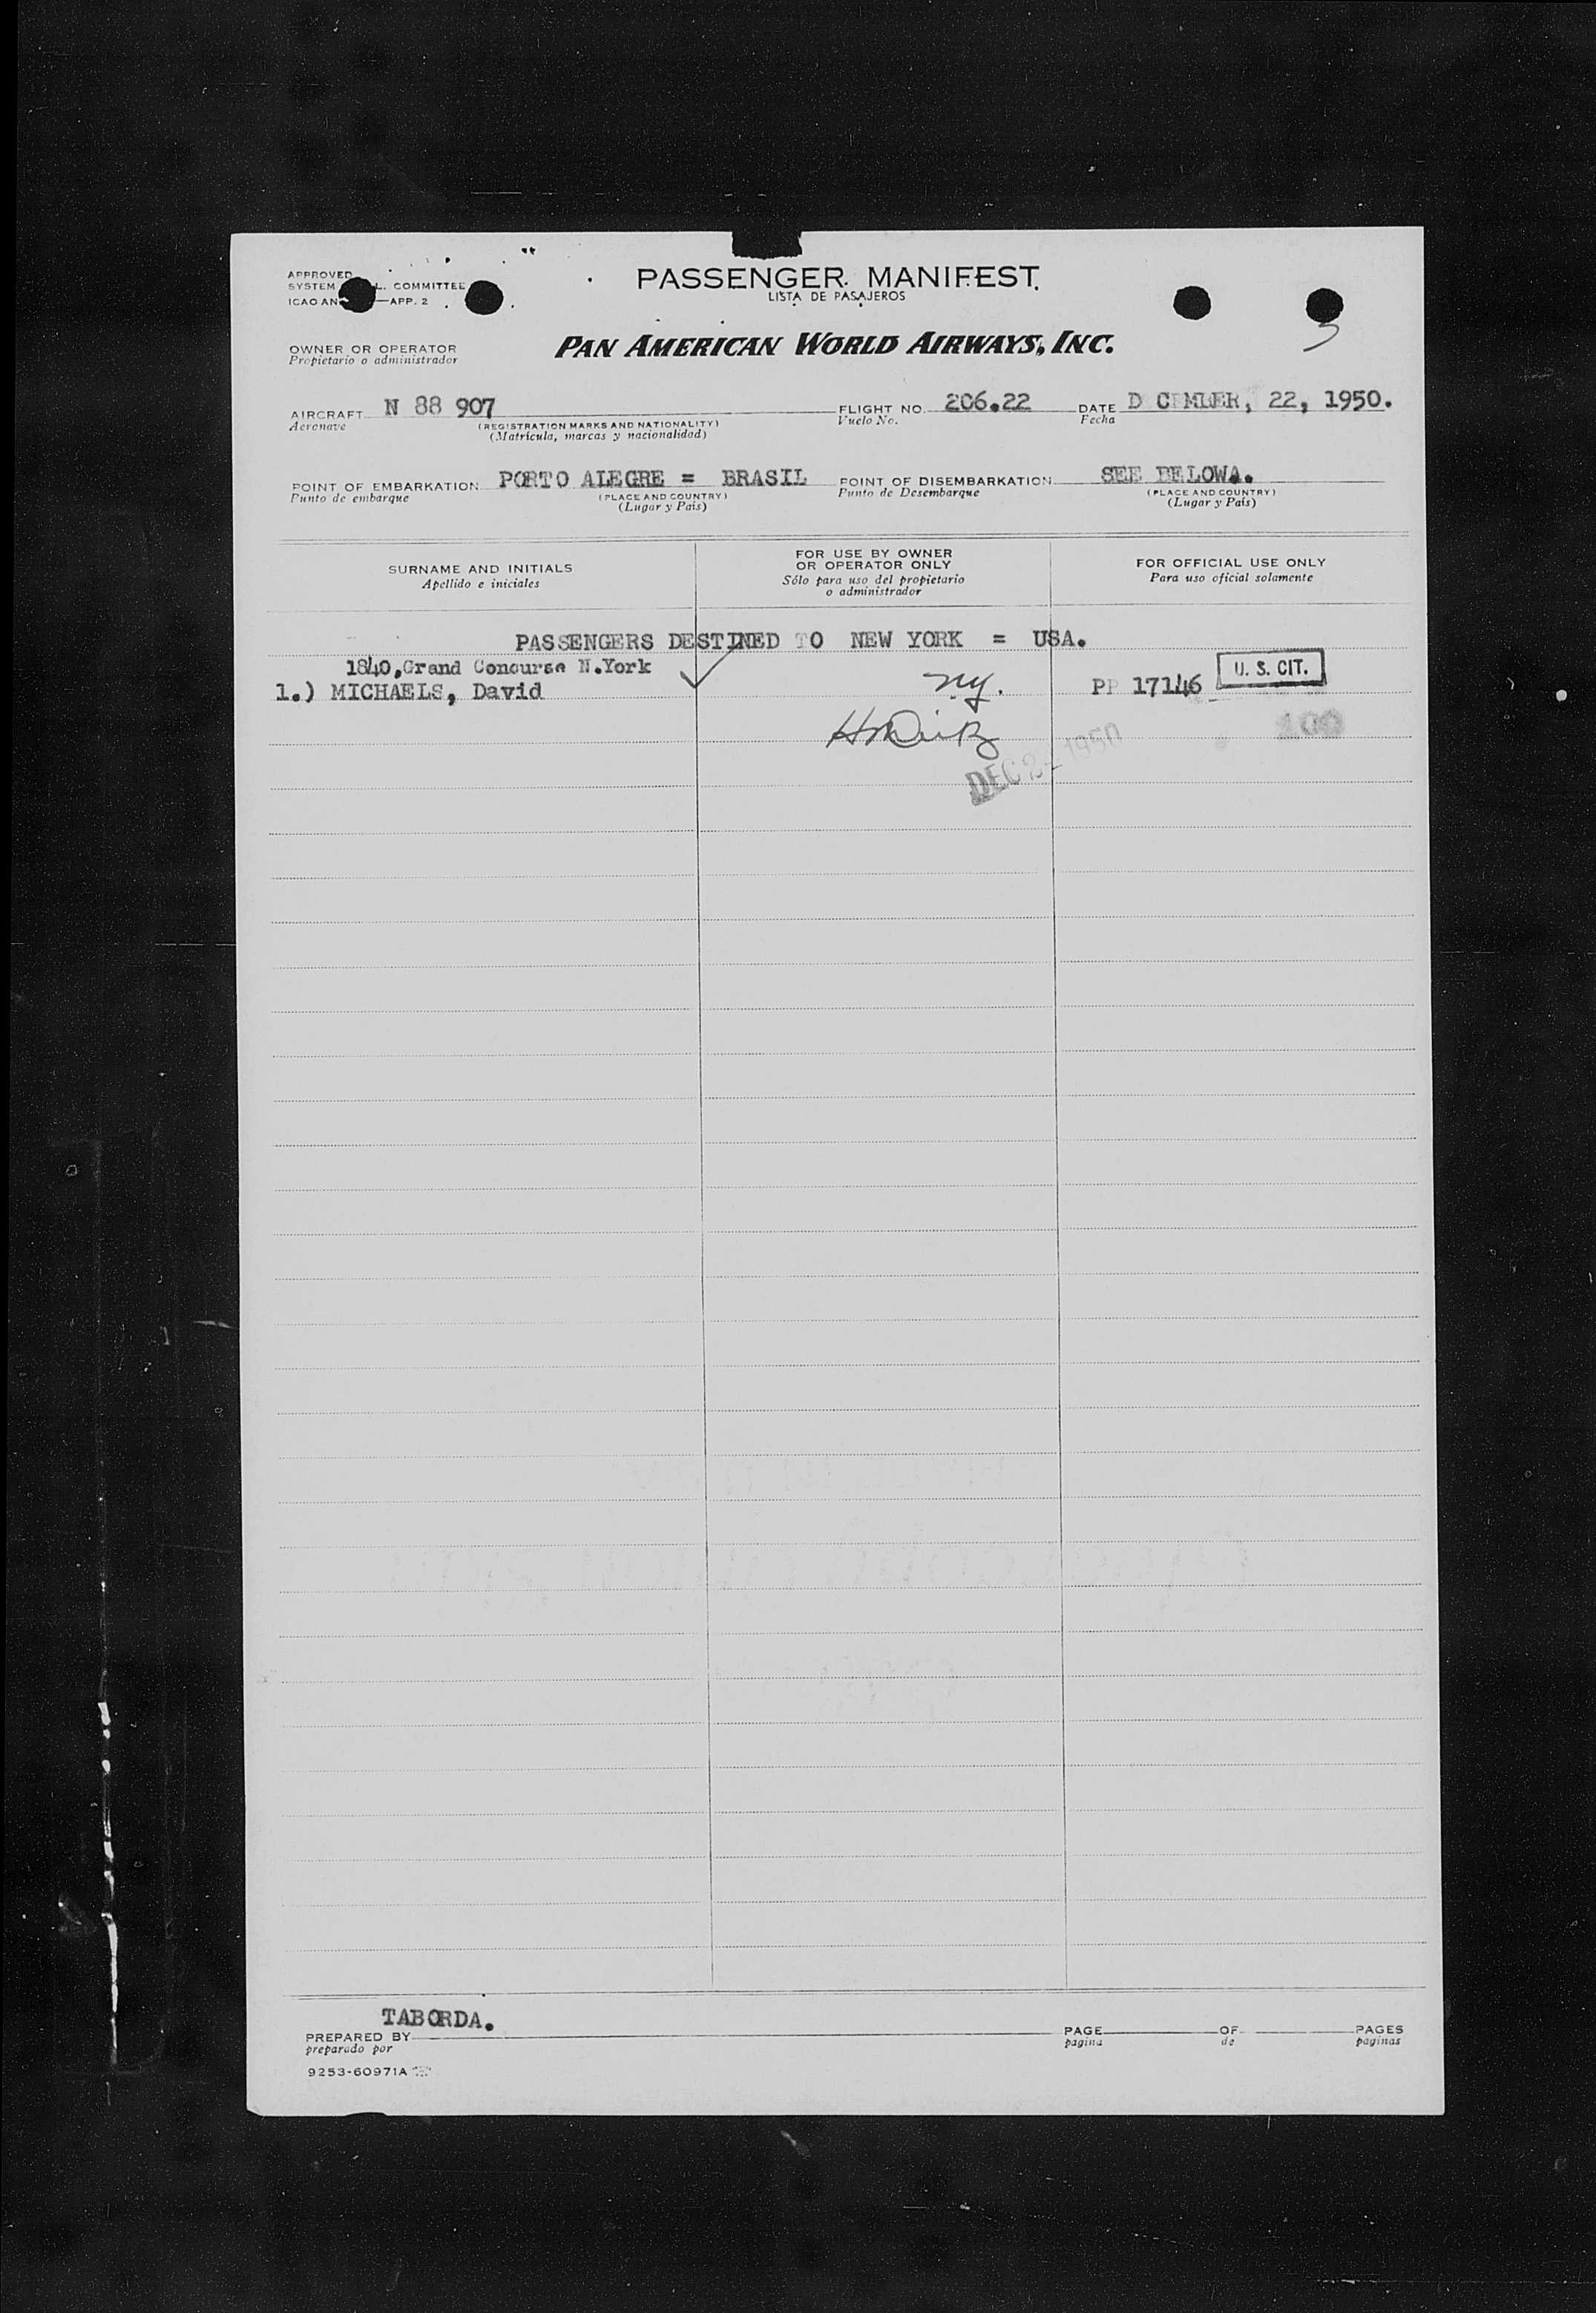 APPROVED
SYSTEM L. COMMITTEE
ICAO AN —APP. 2
PASSENGER MANIFEST
LISTA DE PASAJEROS
3
OWNER OR OPERATOR
Propietario o administrador
PAN AMERICAN WORLD AIRWAYS, INC.
AIRCRAFT N 88 907 FLIGHT NO. 206.22 DATE D C MBER, 22, 1950.
Aeronave (REGISTRATION MARKS AND NATIONALITY) Vuelo No. Fecha
(Matrícula, marcas y nacionalidad)
POINT OF EMBARKATION PORTO ALEGRE = BRASIL POINT OF DISEMBARKATION SEE BELOWA.
Punto de embarque (PLACE AND COUNTRY) Punto de Desembarque (PLACE AND COUNTRY)
(Lugar y País) (Lugar y País)
SURNAME AND INITIALS
Apellido e iniciales
FOR USE BY OWNER
OR OPERATOR ONLY
Sólo para uso del propietario
o administrador
FOR OFFICIAL USE ONLY
Para uso oficial solamente
PASSENGERS DESTINED TO NEW YORK = USA.
1840,Grand Concurse N.York
1.) MICHAELS, David ny. PP 17146 U. S. CIT.
100
DEC 2 1950
TABORDA.
PREPARED BY PAGE OF PAGES
preparado por pagina de paginas
9253-60971A